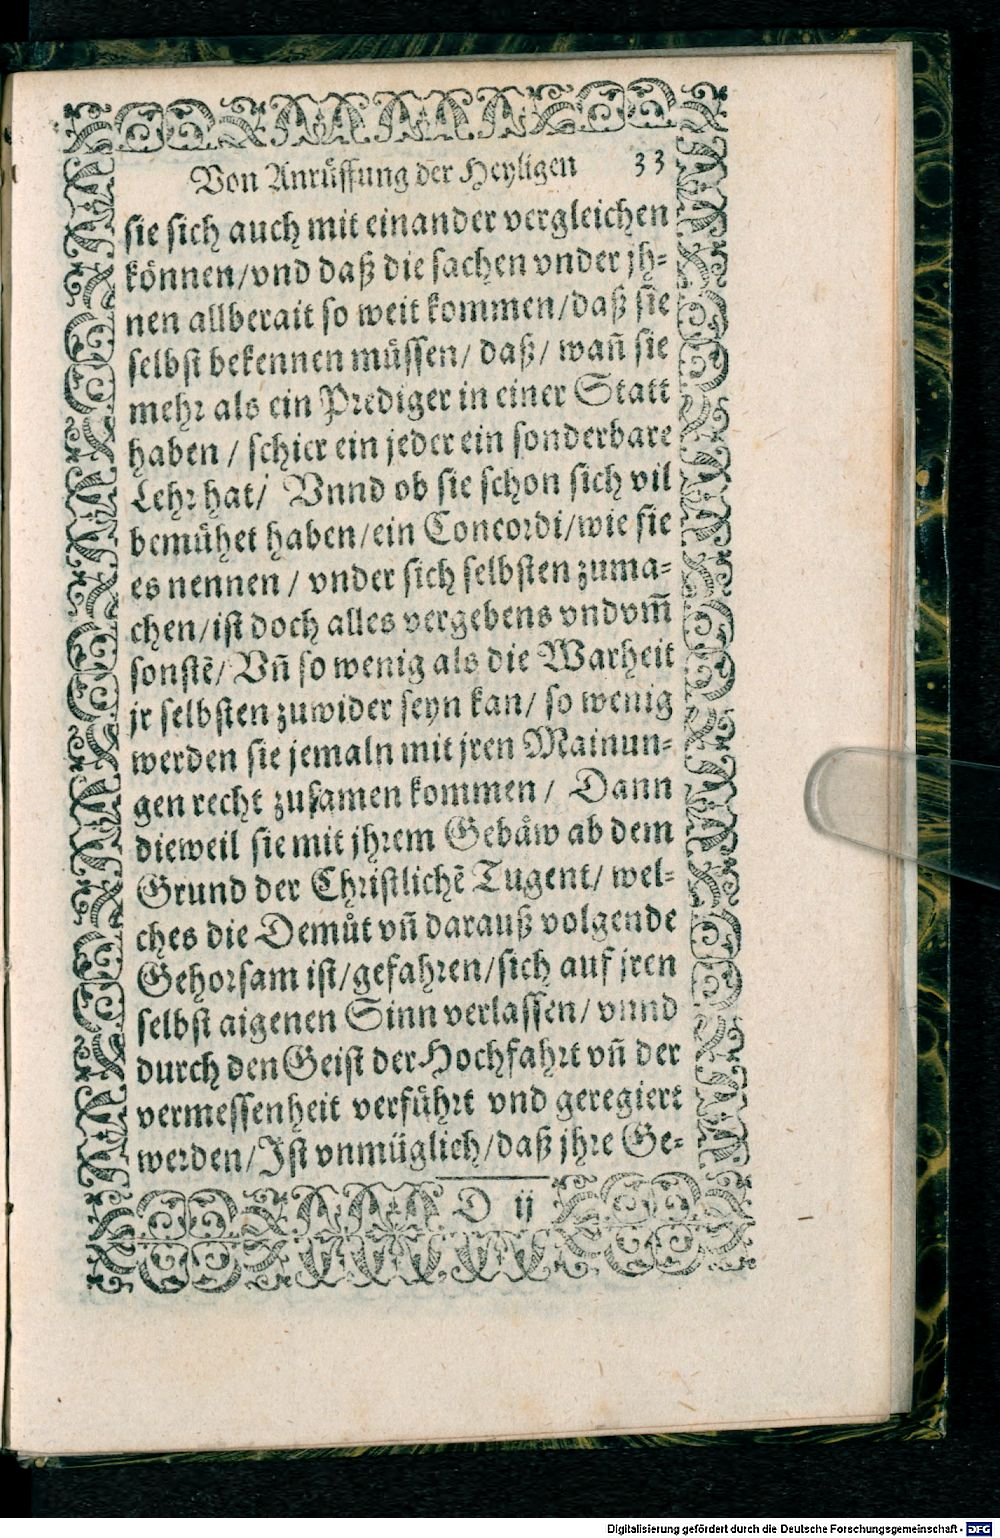 Von Anruͤffung der Heyligen 33
sie sich auch mit einander vergleichen
koͤnnen/vnd daß die sachen vnder jh⸗
nen allberait so weit kommen/daß sie
selbst bekennen muͤssen/ daß/ wañ sie
mehr als ein Prediger in einer Statt
haben / schier ein jeder ein sonderbare
Lehr hat/ Vnnd ob sie schon sich vil
bemuͤhet haben/ein Concordi/wie sie
es nennen / vnder sich selbsten zuma⸗
chen/ist doch alles vergebens vndvm̃
sonstẽ/ Vñ so wenig als die Warheit
jr selbsten zuwider seyn kan/ so wenig
werden sie jemaln mit jren Mainun⸗
gen recht zusamen kommen/ Dann
dieweil sie mit jhrem Gebaͤw ab dem
Grund der Christlichẽ Tugent/ wel⸗
ches die Demuͦt vñ darauß volgende
Gehorsam ist/gefahren/sich auf jren
selbst aigenen Sinn verlassen/ vnnd
durch den Geist der Hochfahrt vñ der
vermessenheit verfuͤhrt vnd geregiert
werden/Ist vnmüglich/daß jhre Ge⸗
D ij
Digitalisierung gefördert durch die Deutsche Forschungsgemeinschaft - DFG